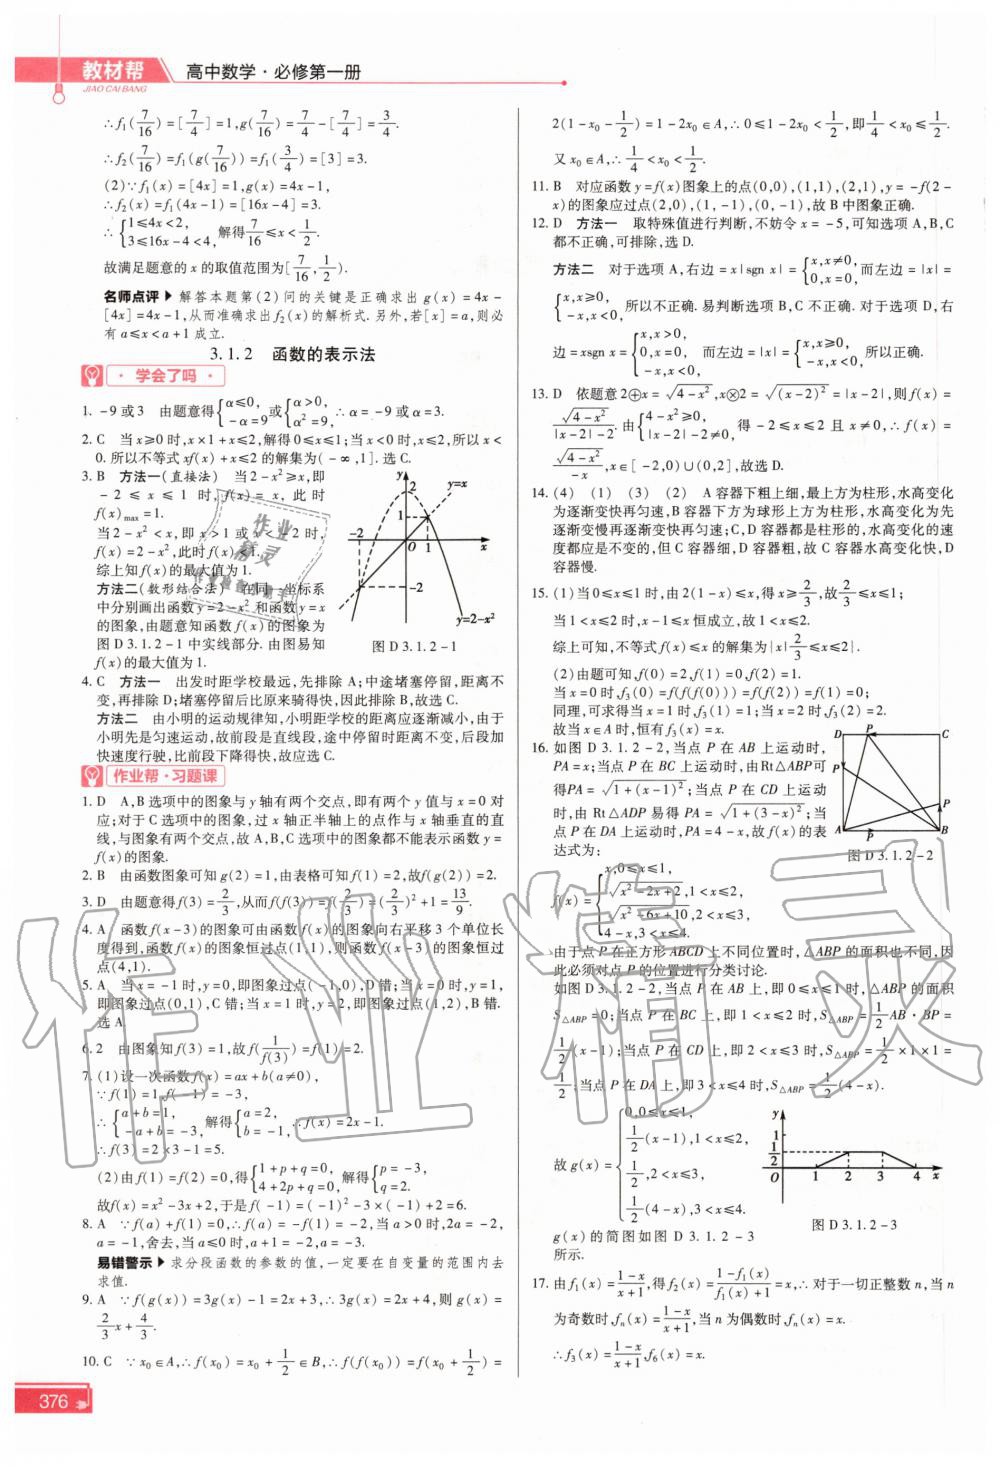 教材帮 高中数学·必修第一册
JIAO CAI BANG
∴f₁(7/16)=[7/4]=1,g(7/16)=7/4-[7/4]=3/4.
∴f₂(7/16)=f₁(g(7/16))=f₁(3/4)=[3]=3.
(2)∵f₁(x)=[4x]=1,g(x)=4x-1,
∴f₂(x)=f₁(4x-1)=[16x-4]=3.
∴{1≤4x<2, 3≤16x-4<4, 解得7/16≤x<1/2.
故满足题意的x的取值范围为[7/16,1/2).
名师点评▶ 解答本题第(2)问的关键是正确求出g(x)=4x-
[4x]=4x-1,从而准确求出f₂(x)的解析式.另外,若[x]=a,则必
有a≤x<a+1成立.
3.1.2 函数的表示法
·学会了吗·
1. -9或3 由题意得{α≤0, -α=9 或{α>0, α²=9, ∴α=-9或α=3.
2. C 当x≥0时,x×1+x≤2,解得0≤x≤1;当x<0时,x≤2,所以x<
0.所以不等式xf(x)+x≤2的解集为(-∞,1].选C.
3. B 方法一(直接法) 当2-x²≥x,即
-2≤x≤1时,f(x)=x,此时
f(x)max=1.
当2-x²<x,即x>1或x<-2时,
f(x)=2-x²,此时f(x)<1.
综上知f(x)的最大值为1.
方法二(数形结合法) 在同一坐标系
中分别画出函数y=2-x²和函数y=x
的图象,由题意知函数f(x)的图象为
图D 3.1.2-1中实线部分.由图易知
f(x)的最大值为1.
y 2 y=x 1 -2 O 1 x -2 y=2-x²
图D 3.1.2-1
4. C 方法一 出发时距学校最远,先排除A;中途堵塞停留,距离不
变,再排除D;堵塞停留后比原来骑得快,因此排除B,故选C.
方法二 由小明的运动规律知,小明距学校的距离应逐渐减小,由于
小明先是匀速运动,故前段是直线段,途中停留时距离不变,后段加
快速度行驶,比前段下降得快.故应选C.
作业帮·习题课
1. D A,B选项中的图象与y轴有两个交点,即有两个y值与x=0对
应;对于C选项中的图象,过x轴正半轴上的点作与x轴垂直的直
线,与图象有两个交点,故A,B,C选项中的图象都不能表示函数y=
f(x)的图象.
2. B 由函数图象可知g(2)=1,由表格可知f(1)=2,故f(g(2))=2.
3. D 由题意得f(3)=2/3,从而f(f(3))=f(2/3)=(2/3)²+1=13/9.
4. A 函数f(x-3)的图象可由函数f(x)的图象向右平移3个单位长
度得到,函数f(x)的图象恒过点(1,1),则函数f(x-3)的图象恒过
点(4,1).
5. A 当x=-1时,y=0,即图象过点(-1,0),D错;当x=0时,y=1,
即图象过点(0,1),C错;当x=1时,y=2,即图象过点(1,2),B错.
选A.
6. 2 由图象知f(3)=1,故f(1/f(3))=f(1)=2.
7. (1)设一次函数f(x)=ax+b(a≠0),
∵f(1)=1,f(-1)=-3,
∴{a+b=1, -a+b=-3, 解得{a=2, b=-1, ∴f(x)=2x-1.
∴f(3)=2×3-1=5.
(2)由f(1)=f(2)=0,得{1+p+q=0, 4+2p+q=0, 解得{p=-3, q=2.
故f(x)=x²-3x+2,于是f(-1)=(-1)²-3×(-1)+2=6.
8. A ∵f(a)+f(1)=0,∴f(a)=-f(1)=-2,当a>0时,2a=-2,
a=-1,舍去,当a≤0时,a+1=-2,a=-3.
易错警示▶ 求分段函数的参数的值,一定要在自变量的范围内去
求值.
9. A ∵f(g(x))=3g(x)-1=2x+3,∴3g(x)=2x+4,则g(x)=
2/3x+4/3.
10. C ∵x₀∈A,∴f(x₀)=x₀+1/2∈B,∴f(f(x₀))=f(x₀+1/2)=
376
2(1-x₀-1/2)=1-2x₀∈A,∴0≤1-2x₀<1/2,即1/4<x₀≤1/2.
又x₀∈A,∴1/4<x₀<1/2.
11. B 对应函数y=f(x)图象上的点(0,0),(1,1),(2,1),y=-f(2-
x)的图象应过点(2,0),(1,-1),(0,-1),故B中图象正确.
12. D 方法一 取特殊值进行判断,不妨令x=-5,可知选项A,B,C
都不正确,可排除,选D.
方法二 对于选项A,右边=x|sgn x|={x,x≠0, 0,x=0, 而左边=|x|=
{x,x≥0, -x,x<0, 所以不正确.易判断选项B,C不正确.对于选项D,右
边=xsgn x={x,x>0, 0,x=0, -x,x<0, 而左边=|x|={x,x≥0, -x,x<0, 所以正确.
13. D 依题意2⊕x=√(4-x²),x⊗2=√((x-2)²)=|x-2|,则f(x)=
√(4-x²)/(|x-2|-2).由{4-x²≥0, |x-2|-2≠0, 得-2≤x≤2且x≠0,∴f(x)=
√(4-x²)/(-x),x∈[-2,0)∪(0,2],故选D.
14. (4) (1) (3) (2) A容器下粗上细,最上方为柱形,水高变化
为逐渐变快再匀速,B容器下方为球形上方为柱形,水高变化为先
逐渐变慢再逐渐变快再匀速;C,D容器都是柱形的,水高变化的速
度都应是不变的,但C容器细,D容器粗,故C容器水高变化快,D
容器慢.
15. (1)当0≤x≤1时,由2(1-x)≤x,得x≥2/3,故2/3≤x≤1;
当1<x≤2时,x-1≤x恒成立,故1<x≤2.
综上可知,不等式f(x)≤x的解集为{x|2/3≤x≤2}.
(2)由题可知,f(0)=2,f(1)=0,f(2)=1.
当x=0时,f₃(0)=f(f(f(0)))=f(f(2))=f(1)=0;
同理,可求得当x=1时,f₃(1)=1;当x=2时,f₃(2)=2.
故当x∈A时,恒有f₃(x)=x.
16. 如图D 3.1.2-2,当点P在AB上运动时,
PA=x;当点P在BC上运动时,由Rt△ABP可
得PA=√(1+(x-1)²);当点P在CD上运动
时,由Rt△ADP易得PA=√(1+(3-x)²);当
点P在DA上运动时,PA=4-x,故f(x)的表
达式为:
D P C P P A P B
图D 3.1.2-2
f(x)={x,0≤x≤1,
√(x²-2x+2),1<x≤2,
√(x²-6x+10),2<x≤3,
4-x,3<x≤4.
由于点P在正方形ABCD上不同位置时,△ABP的面积也不同,因
此必须对点P的位置进行分类讨论.
如图D 3.1.2-2,当点P在AB上,即0≤x≤1时,△ABP的面积
S△ABP=0;当点P在BC上,即1<x≤2时,S△ABP=1/2AB·BP=
1/2(x-1);当点P在CD上,即2<x≤3时,S△ABP=1/2×1×1=
1/2;当点P在DA上,即3<x≤4时,S△ABP=1/2(4-x).
故g(x)={0,0≤x≤1,
1/2(x-1),1<x≤2,
1/2,2<x≤3,
1/2(4-x),3<x≤4.
y 1 1/2 O 1 2 3 4 x
图D 3.1.2-3
g(x)的简图如图D 3.1.2-3
所示.
17. 由f₁(x)=(1-x)/(x+1),得f₂(x)=(1-f₁(x))/(f₁(x)+1)=x,∴对于一切正整数n,当n
为奇数时,fₙ(x)=(1-x)/(x+1),当n为偶数时,fₙ(x)=x.
∴f₃(x)=(1-x)/(x+1),f₆(x)=x.
作业精灵